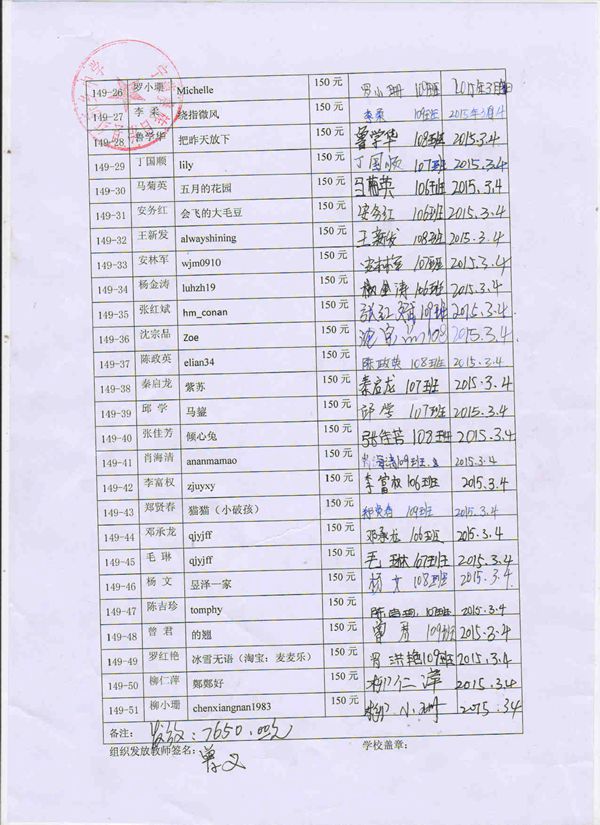 149-26 罗小珊 Michelle 150元 罗小珊 109班 2015年3月4日
149-27 李 柔 绕指微风 150元 李柔 109班 2015年3月4
149-28 鲁学华 把昨天放下 150元 鲁学华 108班 2015.3.4
149-29 丁国顺 lily 150元 丁国顺 107班 2015.3.4
149-30 马菊英 五月的花园 150元 马菊英 106班 2015.3.4
149-31 安务红 会飞的大毛豆 150元 安务红 106班 2015.3.4
149-32 王新发 alwayshining 150元 王新发 108班 2015.3.4
149-33 安林军 wjm0910 150元 安林军 107班 2015.3.4
149-34 杨金涛 luhzh19 150元 杨金涛 106班 2015.3.4
149-35 张红斌 hm_conan 150元 张红斌 109班 2015.3.4
149-36 沈宗品 Zoe 150元 沈宗 2015.3.4
149-37 陈政英 elian34 150元 陈政英 108班 2015.3.4
149-38 秦启龙 紫苏 150元 秦启龙 107班 2015.3.4
149-39 邱 学 马鋆 150元 邱学 107班 2015.3.4
149-40 张佳芳 倾心兔 150元 张佳芳 108班 2015.3.4
149-41 肖海清 ananmamao 150元 肖海清 109班 2015.3.4
149-42 李富权 zjuyxy 150元 李富权 106班 2015.3.4
149-43 郑贤春 猫猫（小破孩） 150元 郑贤春 109班 2015.3.4
149-44 邓承龙 qjyjff 150元 邓承龙 106班 2015.3.4
149-45 毛 琳 qjyjff 150元 毛琳 107班 2015.3.4
149-46 杨 文 昱泽一家 150元 杨文 108班 2015.3.4
149-47 陈吉珍 tomphy 150元 陈吉珍 108班 2015.3.4
149-48 曾 君 的翘 150元 曾君 109班 2015.3.4
149-49 罗红艳 冰雪无语（淘宝：麦麦乐） 150元 罗洪艳 109班 2015.3.4
149-50 柳仁萍 鄭鄭好 150元 柳仁萍 2015.3.4
149-51 柳小珊 chenxiangnan1983 150元 柳小珊 2015.3.4
备注： 发放：7650.00元
组织发放教师签名： 曾义 学校盖章：